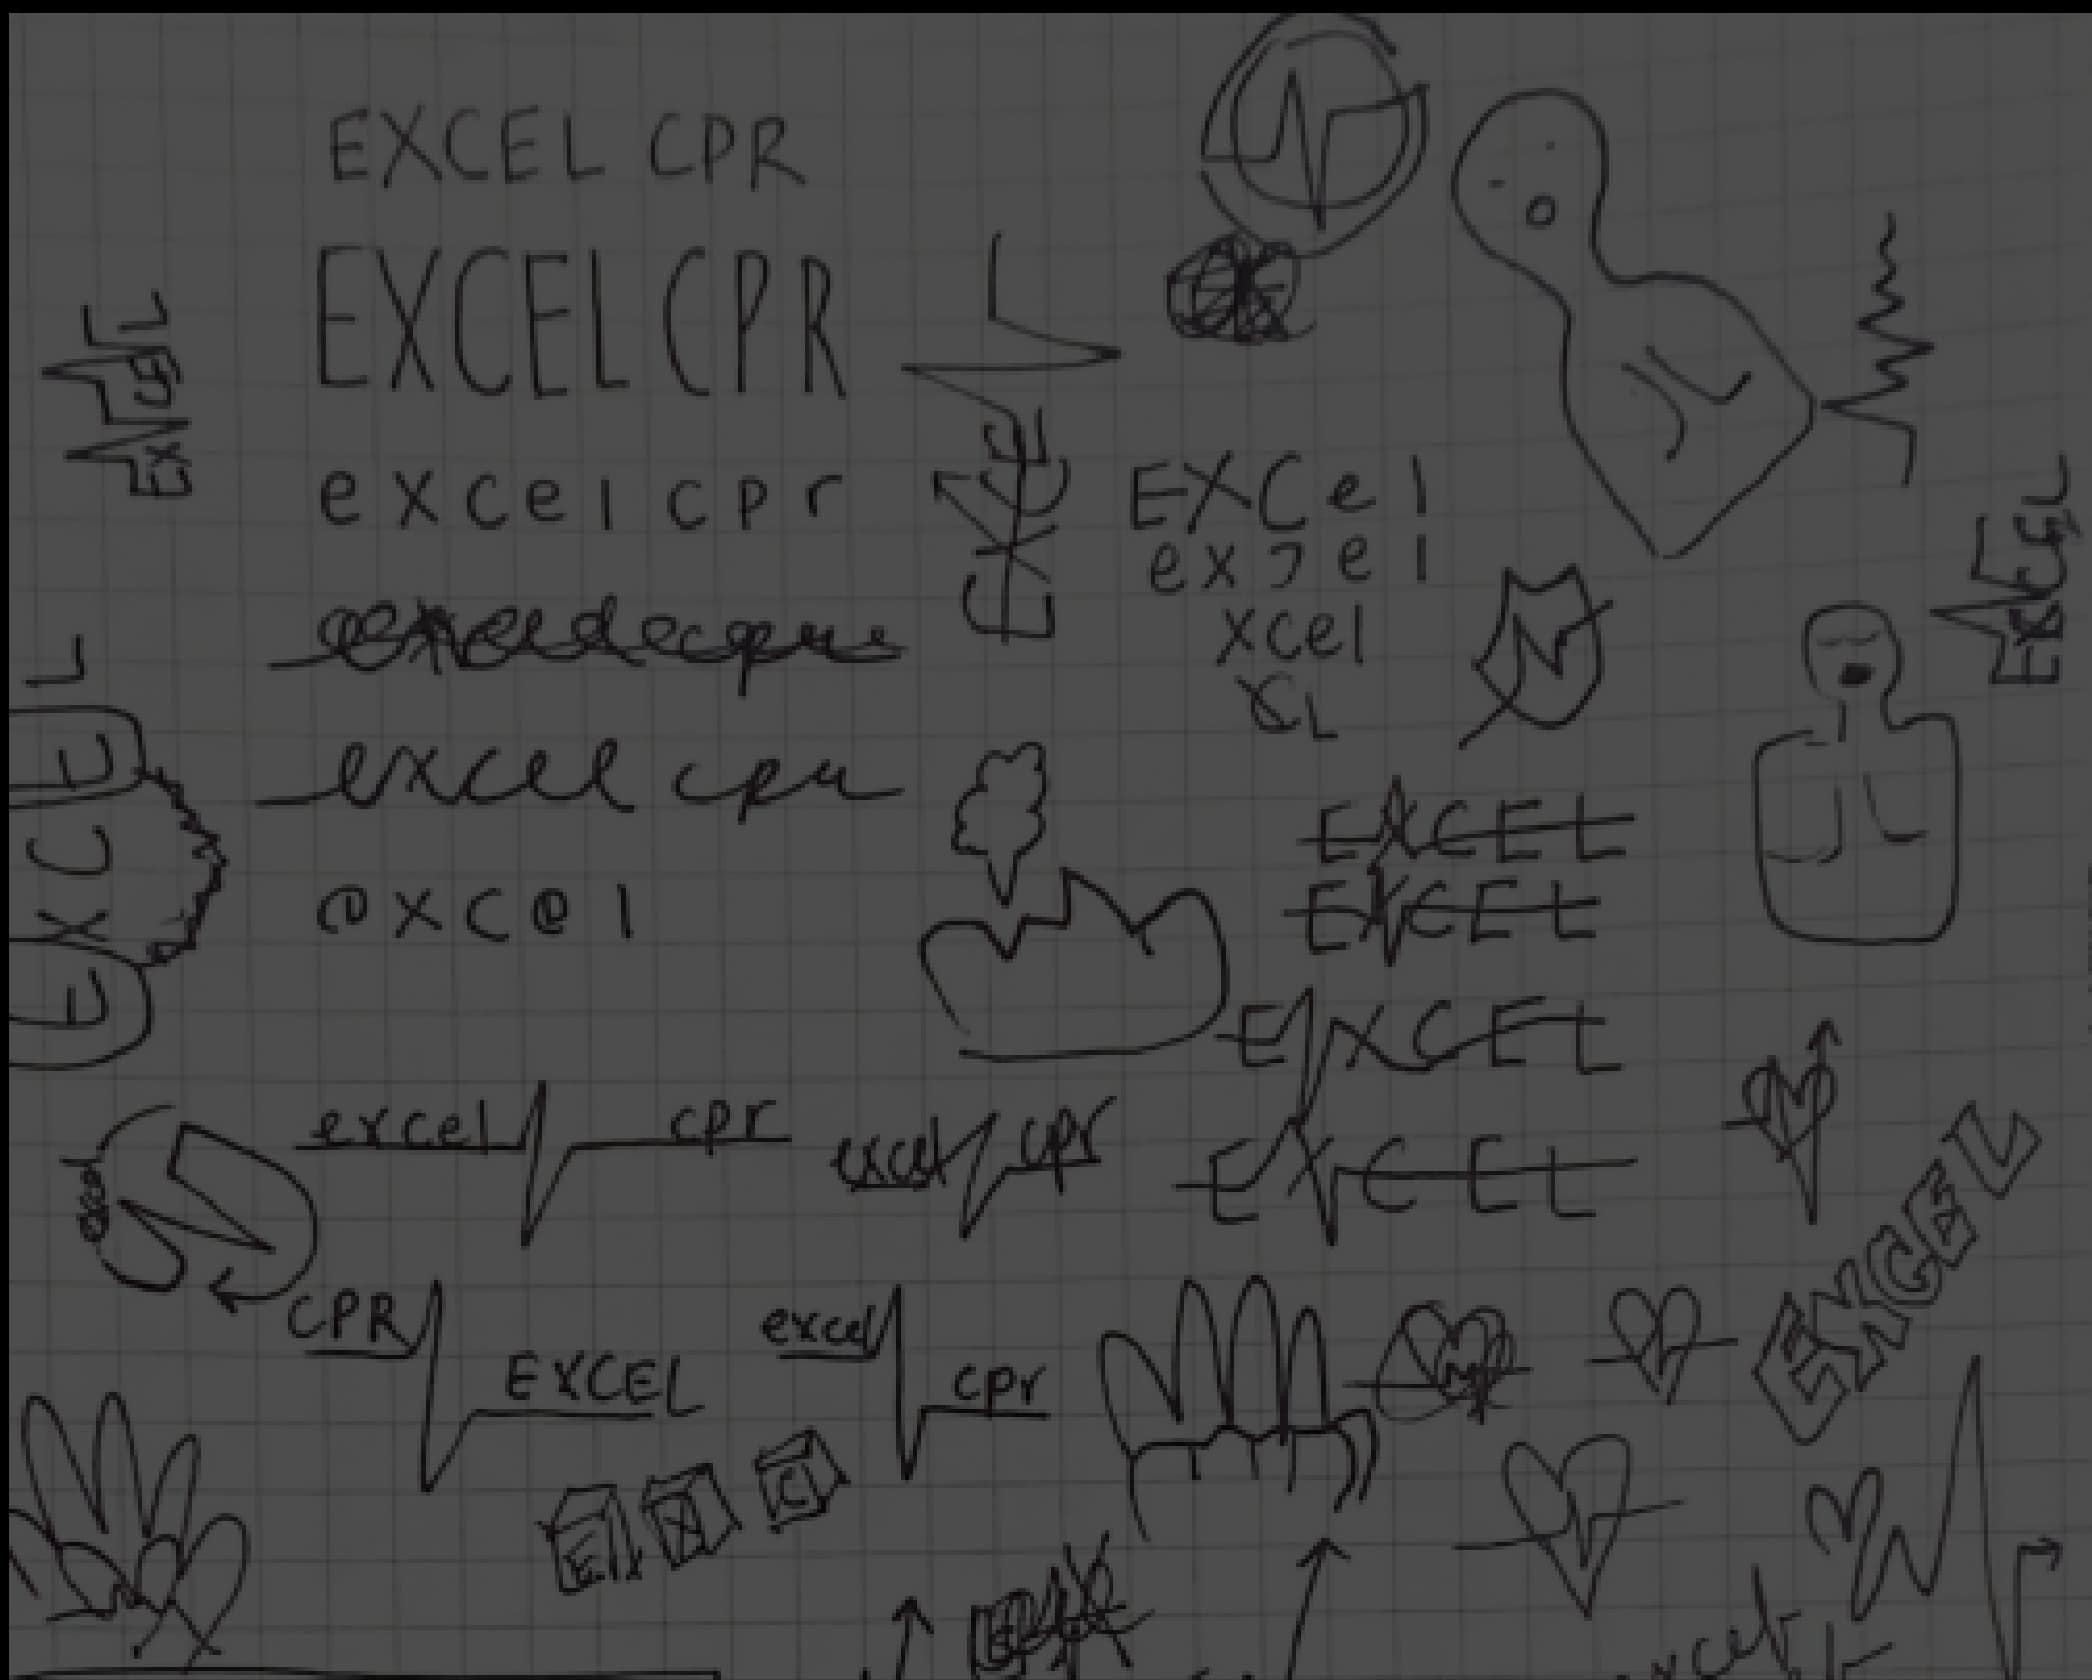 EXCEL CPR
EXCEL CPR
excel cpr
excel cpr
excel
EXCEL
EXCEL
EXCE
EXCel
excel
xcel
XL
EXCEL
EXCEL
EXCEL
EXCEL
EXCEL
excel cpr
excel cpr
excel
CPR EXCEL
excel cpr
EXCEL
E X C
xcel